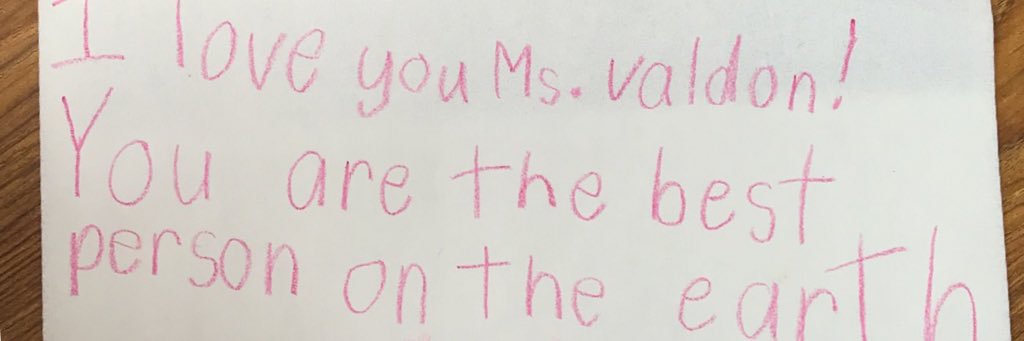 I love you Ms. Valdon!
You are the best
person on the earth